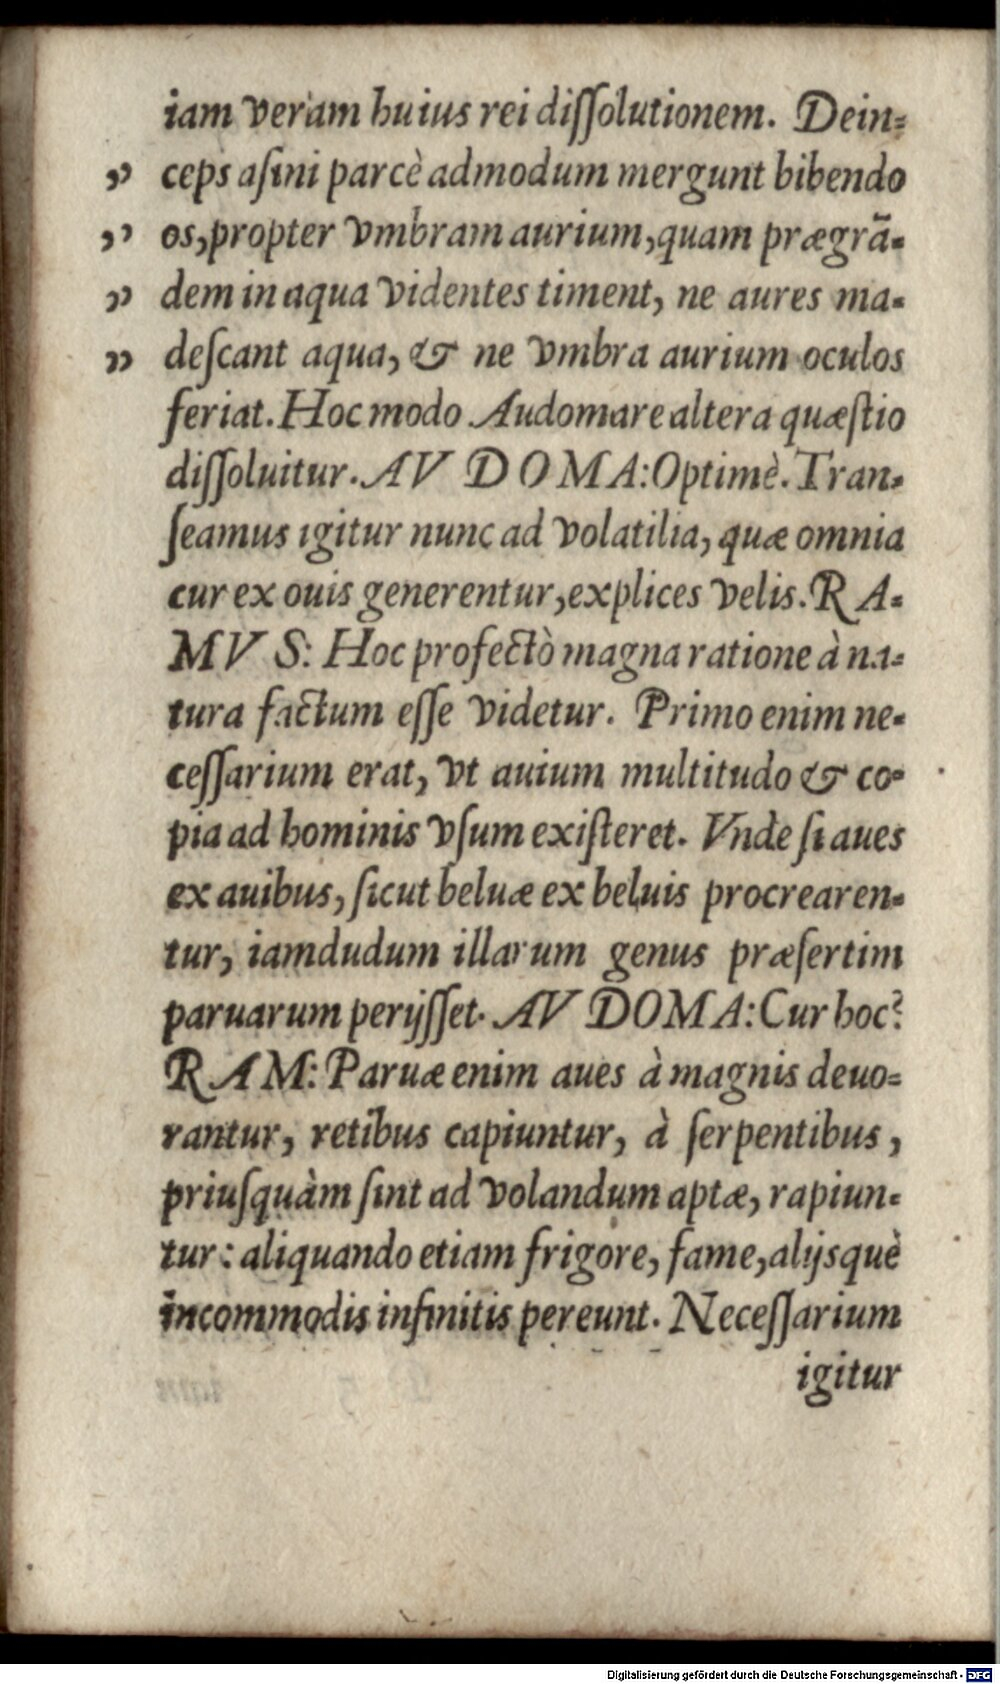 iam veram huius rei diſſolutionem. Dein-
„ ceps aſini parcè admodum mergunt bibendo
„ os, propter vmbram aurium, quam prægrã-
„ dem in aqua videntes timent, ne aures ma-
„ deſcant aqua, & ne vmbra aurium oculos
feriat. Hoc modo Audomare altera quæſtio
diſſoluitur. AVDOMA: Optimè. Tran-
ſeamus igitur nunc ad volatilia, quæ omnia
cur ex ouis generentur, explices velis. RA-
MVS: Hoc profectò magna ratione à na-
tura factum eſſe videtur. Primo enim ne-
ceſſarium erat, vt auium multitudo & co-
pia ad hominis vſum exiſteret. Vnde ſi aues
ex auibus, ſicut beluæ ex beluis procrearen-
tur, iamdudum illarum genus præſertim
paruarum perijſſet. AVDOMA: Cur hoc?
RAM: Paruæ enim aues à magnis deuo-
rantur, retibus capiuntur, à ſerpentibus,
priuſquàm ſint ad volandum aptæ, rapiun-
tur: aliquando etiam frigore, fame, alijsquè
incommodis infinitis pereunt. Neceſſarium
igitur
Digitalisierung gefördert durch die Deutsche Forschungsgemeinschaft - DFG